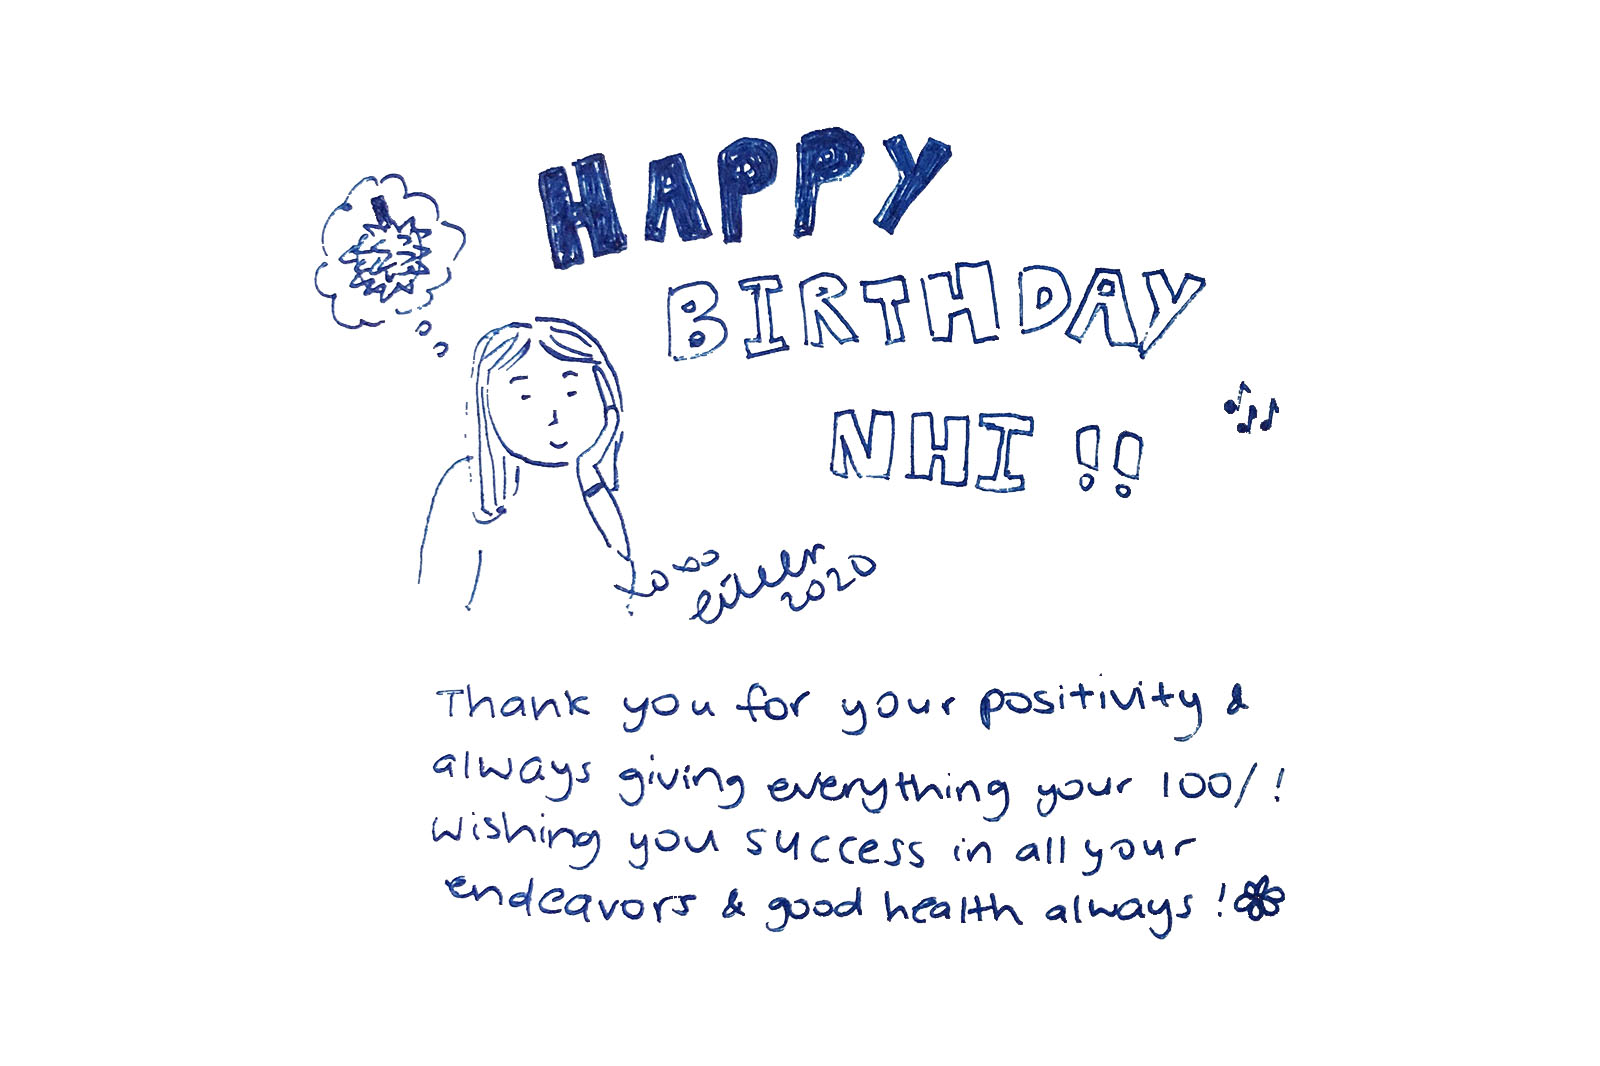 HAPPY
BIRTHDAY
NHI !!
xoxo
2020
Thank you for your positivity &
always giving everything your 100/!
wishing you success in all your
endeavors & good health always!